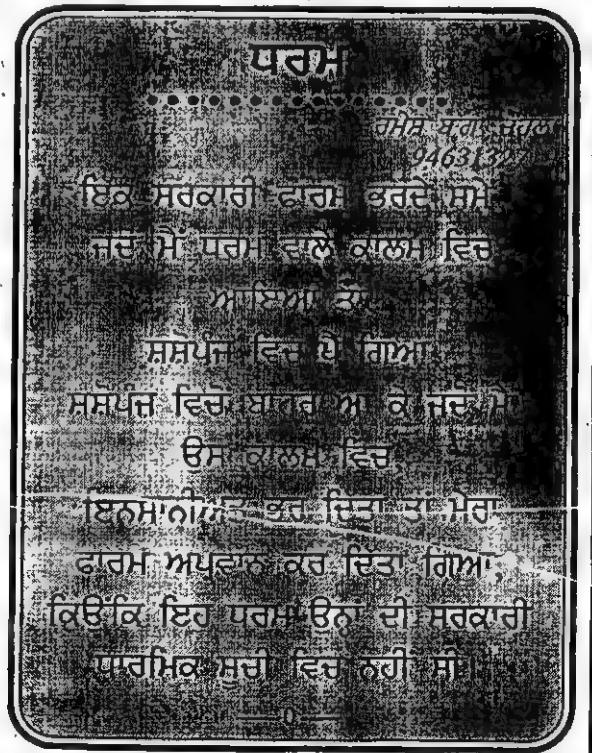 ਧਰਮ
ਰਮੇਸ਼ ਬੱਗਾ
ਇਕ ਸਰਕਾਰੀ ਫਾਰਮ ਭਰਦੇ ਸਮੇਂ
ਜਦ ਮੈਂ ਧਰਮ ਵਾਲੇ ਕਾਲਮ ਵਿਚ
ਆਇਆ ਤਾਂ
ਸ਼ਸ਼ੋਪੰਜ ਵਿਚ ਪੈ ਗਿਆ
ਸ਼ਸ਼ੋਪੰਜ ਵਿਚੋਂ ਬਾਹਰ ਆ ਕੇ ਜਦੋਂ ਮੈਂ
ਉਸ ਕਾਲਮ ਵਿਚ
ਇਨਸਾਨੀਅਤ ਭਰ ਦਿਤਾ ਤਾਂ ਮੇਰਾ
ਫਾਰਮ ਅਪ੍ਰਵਾਨ ਕਰ ਦਿਤਾ ਗਿਆ,
ਕਿਉਂਕਿ ਇਹ ਧਰਮ ਉਨ੍ਹਾਂ ਦੀ ਸਰਕਾਰੀ
ਧਾਰਮਿਕ ਸੂਚੀ ਵਿਚ ਨਹੀਂ ਸੀ।
—0—